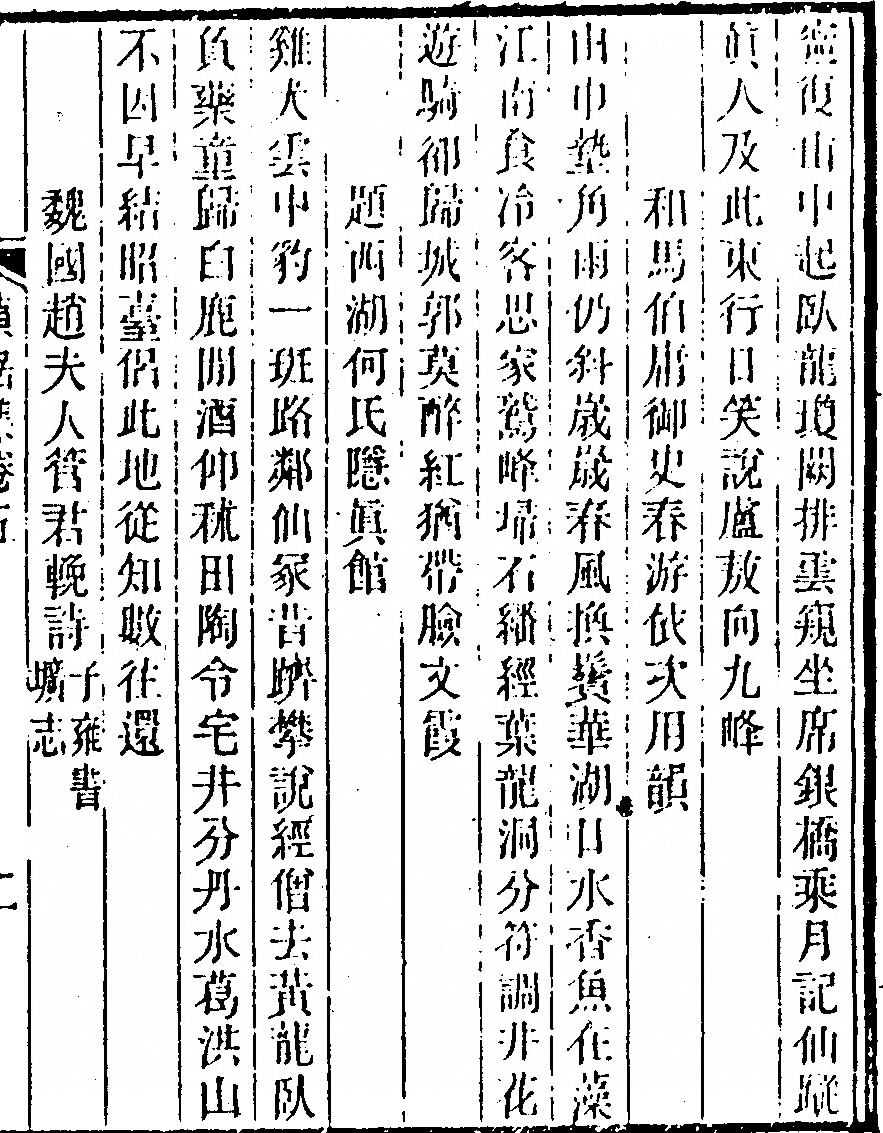 壺復山中起臥龍瓊闕排雲窺坐席銀橋乘月記仙蹤
眞人及此東行日笑說盧敖向九峰
和馬伯庸御史春游依次用韻
山巾墊角雨仍斜歲歲春風換鬢華湖日水香魚在藻
江南食冷客思家鷲峰埽石繙經葉龍洞分符調井花
遊騎郤歸城郭莫醉紅猶帶臉文霞
題西湖何氏隱眞館
雞犬雲中豹一班路鄰仙冢昔躋攀說經僧去黃龍臥
負藥童歸白鹿閒酒仰秫田陶令宅井分丹水葛洪山
不因早結昭臺侶此地從知斁往還
魏國趙夫人管君輓詩子雍書壙志